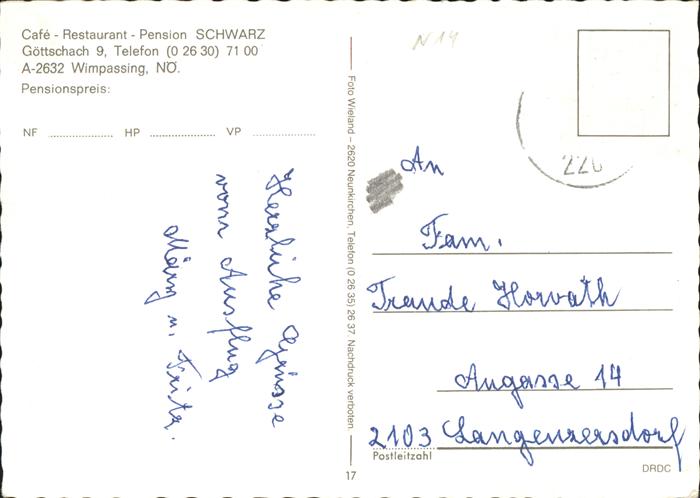 Café - Restaurant - Pension SCHWARZ
Göttschach 9, Telefon (0 26 30) 71 00
A-2632 Wimpassing, NÖ.
Pensionspreis:
NF ............... HP ............... VP ...............
Herzliche Grüsse
vom Ausflug
u. Fritz.
Foto Wieland – 2620 Neunkirchen, Telefon (0 26 35) 26 37. Nachdruck verboten.
17
N 14
220
An
Fam.
Traude Horvath
Augasse 14
2103 Langenzersdorf
Postleitzahl
DRDC